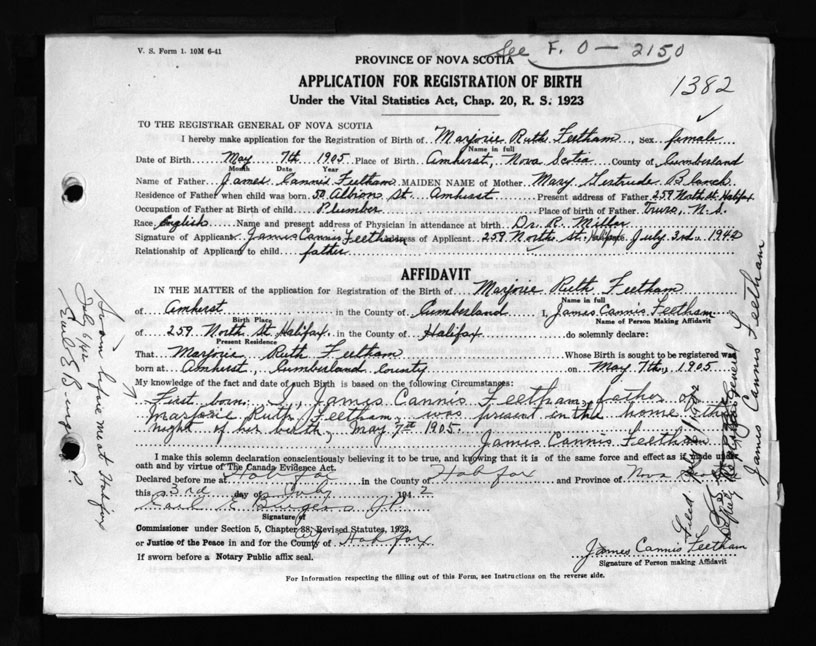 V. S. Form 1. 10M 6-41
See F. O — 2150
PROVINCE OF NOVA SCOTIA
1382
APPLICATION FOR REGISTRATION OF BIRTH
Under the Vital Statistics Act, Chap. 20, R. S. 1923
TO THE REGISTRAR GENERAL OF NOVA SCOTIA
I hereby make application for the Registration of Birth of Marjorie Ruth Feetham, Sex female
Name in full
Date of Birth May 7th 1905 Place of Birth Amherst, Nova Scotia County of Cumberland
Month Date Year
Name of Father James Cannis Feetham MAIDEN NAME of Mother Mary Gertrude Blanch
Residence of Father when child was born Albion St. Amherst Present address of Father 259 North St. Halifax
Occupation of Father at Birth of child Plumber Place of birth of Father Truro, N.S.
Race English Name and present address of Physician in attendance at birth Dr. R. Miller
Signature of Applicant James Cannis Feetham Address of Applicant 259 North St. Halifax July 3rd 1942
Relationship of Applicant to child father
AFFIDAVIT
IN THE MATTER of the application for Registration of the Birth of Marjorie Ruth Feetham
Name in full
of Amherst in the County of Cumberland I, James Cannis Feetham
Birth Place Name of Person Making Affidavit
of 259 North St Halifax in the County of Halifax do solemnly declare:
Present Residence
That Marjorie Ruth Feetham Whose Birth is sought to be registered was
born at Amherst, Cumberland County on May 7th, 1905
My knowledge of the fact and date of such Birth is based on the following Circumstances:
First born. I, James Cannis Feetham, father of
Marjorie Ruth Feetham, was present in the home the
night of her birth, May 7th 1905.
James Cannis Feetham
I make this solemn declaration conscientiously believing it to be true, and knowing that it is of the same force and effect as if made under
oath and by virtue of The Canada Evidence Act.
Declared before me at Halifax in the County of Halifax and Province of Nova
this 3rd day of July 1942
Earl E J.P.
Signature of
Commissioner under Section 5, Chapter 38, Revised Statutes, 1923,
or Justice of the Peace in and for the County of City Halifax
If sworn before a Notary Public affix seal.
James Cannis Feetham
Signature of Person making Affidavit
For Information respecting the filling out of this Form, see Instructions on the reverse side.
Sworn before me at Halifax
July
Earl E
Filed
Deputy Registrar General
James Cannis Feetham